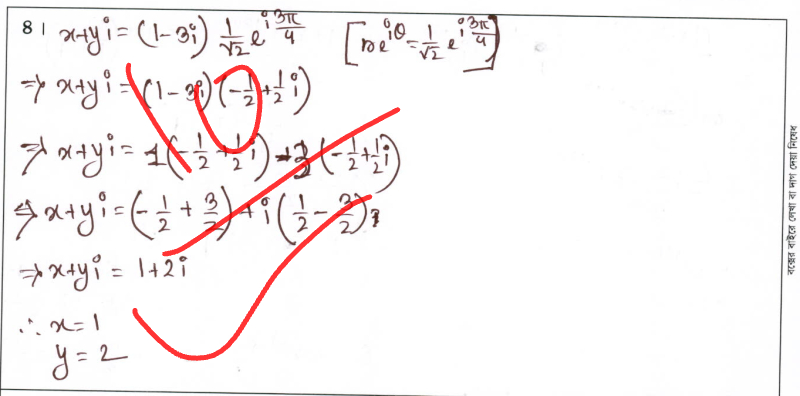 8। x+yi = (1-3i) 1/√2 e^(i 3π/4) [re^(iθ) = 1/√2 e^(i 3π/4)]
⇒ x+yi = (1-3i)(-1/2+1/2 i)
⇒ x+yi = 1(-1/2+1/2 i) -3i(-1/2+1/2 i)
⇒ x+yi = (-1/2 + 3/2) + i(1/2 - 3/2)
⇒ x+yi = 1+2i
∴ x=1
y = 2
বক্সের বাইরে লেখা বা দাগ দেয়া নিষেধ